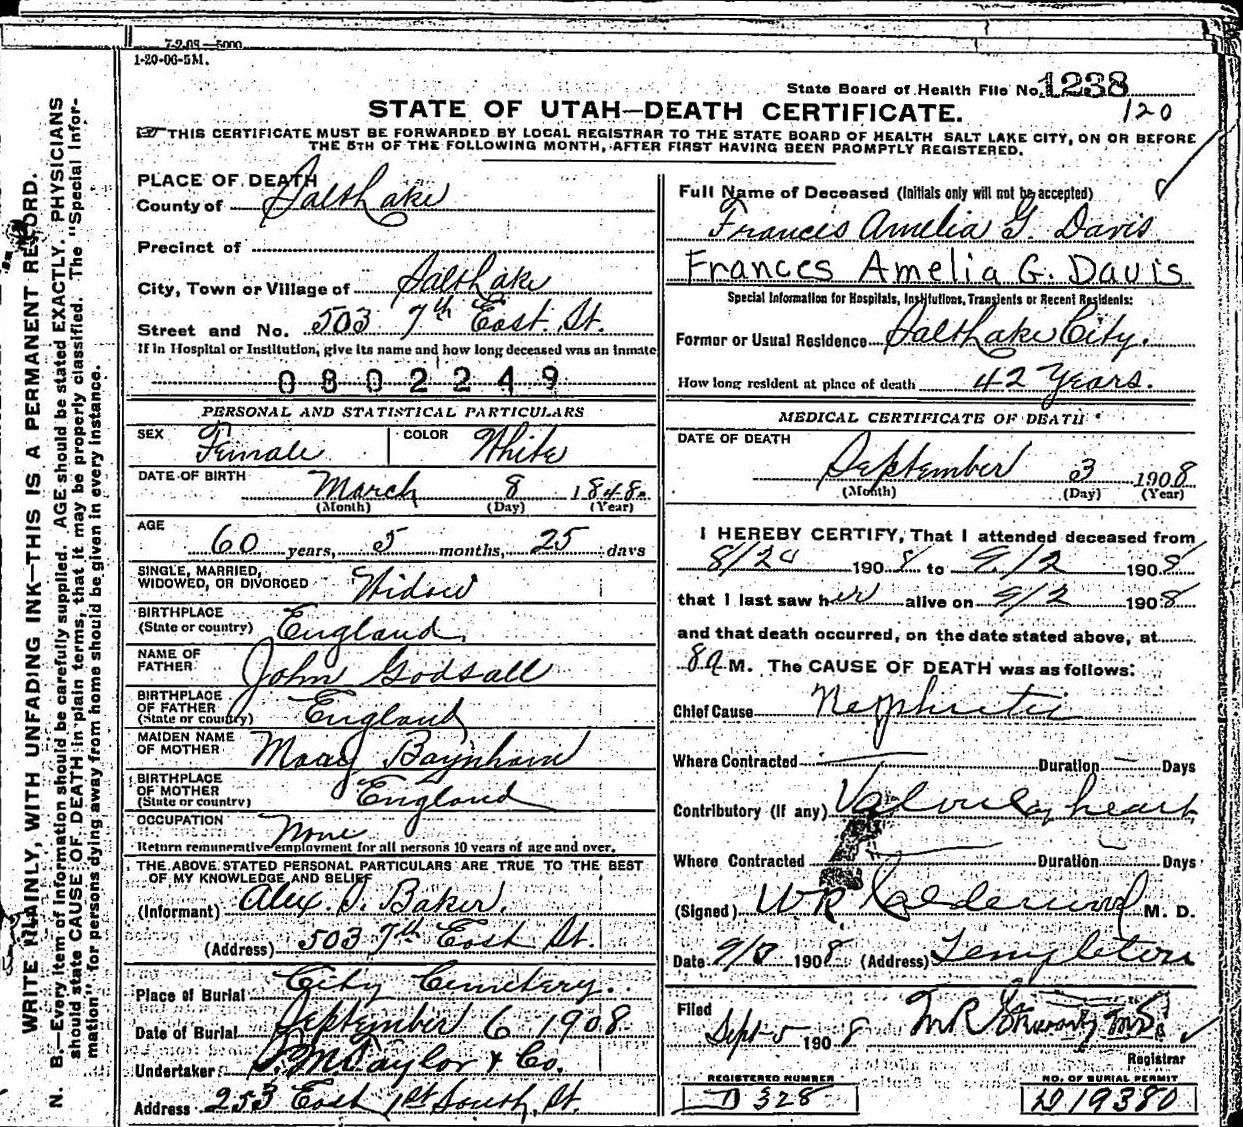 7-2-08—5000
1-20-06-5M.
State Board of Health File No. 1238
120
STATE OF UTAH—DEATH CERTIFICATE.
THIS CERTIFICATE MUST BE FORWARDED BY LOCAL REGISTRAR TO THE STATE BOARD OF HEALTH SALT LAKE CITY, ON OR BEFORE
THE 5TH OF THE FOLLOWING MONTH, AFTER FIRST HAVING BEEN PROMPTLY REGISTERED.
WRITE PLAINLY, WITH UNFADING INK—THIS IS A PERMANENT RECORD.
N. B.—Every item of information should be carefully supplied. AGE should be stated EXACTLY. PHYSICIANS
should state CAUSE OF DEATH in plain terms, that it may be properly classified. The "Special Infor-
mation" for persons dying away from home should be given in every instance.
PLACE OF DEATH
County of Salt Lake
Precinct of
City, Town or Village of Salt Lake
Street and No. 503 7th East St.
If in Hospital or Institution, give its name and how long deceased was an inmate
0802249
PERSONAL AND STATISTICAL PARTICULARS
SEX Female COLOR White
DATE OF BIRTH March 8 1848.
(Month) (Day) (Year)
AGE
60 years, 5 months, 25 days
SINGLE, MARRIED,
WIDOWED, OR DIVORCED Widow
BIRTHPLACE
(State or country) England
NAME OF
FATHER John Godsall
BIRTHPLACE
OF FATHER
(State or country) England
MAIDEN NAME
OF MOTHER Mary Baynham
BIRTHPLACE
OF MOTHER
(State or country) England
OCCUPATION None
Return remunerative employment for all persons 10 years of age and over.
THE ABOVE STATED PERSONAL PARTICULARS ARE TRUE TO THE BEST
OF MY KNOWLEDGE AND BELIEF
(Informant) Alex. J. Baker.
(Address) 503 7th East St.
Place of Burial City Cemetery.
Date of Burial September 6 1908
Undertaker S. M. Taylor & Co.
Address 253 East 1st South St.
Full Name of Deceased (Initials only will not be accepted)
Francis Amelia G. Davis
Frances Amelia G. Davis
Special Information for Hospitals, Institutions, Transients or Recent Residents:
Former or Usual Residence Salt Lake City.
How long resident at place of death 42 Years.
MEDICAL CERTIFICATE OF DEATH
DATE OF DEATH
September 3 1908
(Month) (Day) (Year)
I HEREBY CERTIFY, That I attended deceased from
8/20 1908 to 9/2 1908
that I last saw her alive on 9/2 1908
and that death occurred, on the date stated above, at
8a M. The CAUSE OF DEATH was as follows:
Chief Cause Nephritis
Where Contracted — Duration — Days
Contributory (if any) Valvule of heart
Where Contracted — Duration — Days
(Signed) W.R. Calderwood M. D.
Date 9/3 1908 (Address) Templeton
Filed
Sept 5 1908 M.D.
Registrar
REGISTERED NUMBER
D 328
NO. OF BURIAL PERMIT
D 19380